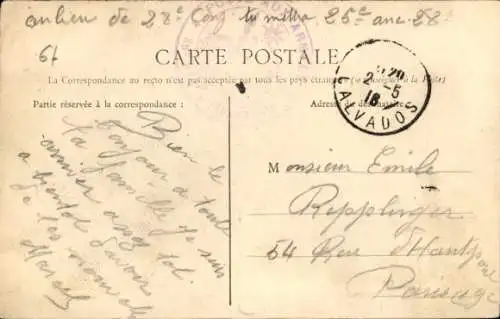 au lieu de 28e Comp tu mettra 25e anc 28e
61
CARTE POSTALE
La Correspondance au recto n'est pas acceptée par tous les pays étrangers (se renseigner à la Poste)
Partie réservée à la correspondance :
Adresse du destinataire
2 -5
16
CALVADOS
Bien le
bonjour à toute
ta famille je suis
arrivé assez tôt
a bientôt d'avoir
de tes nouvelles
Marcel
Monsieur Emile
Repplinger
54 Rue d'Hautpoul
Paris 19e